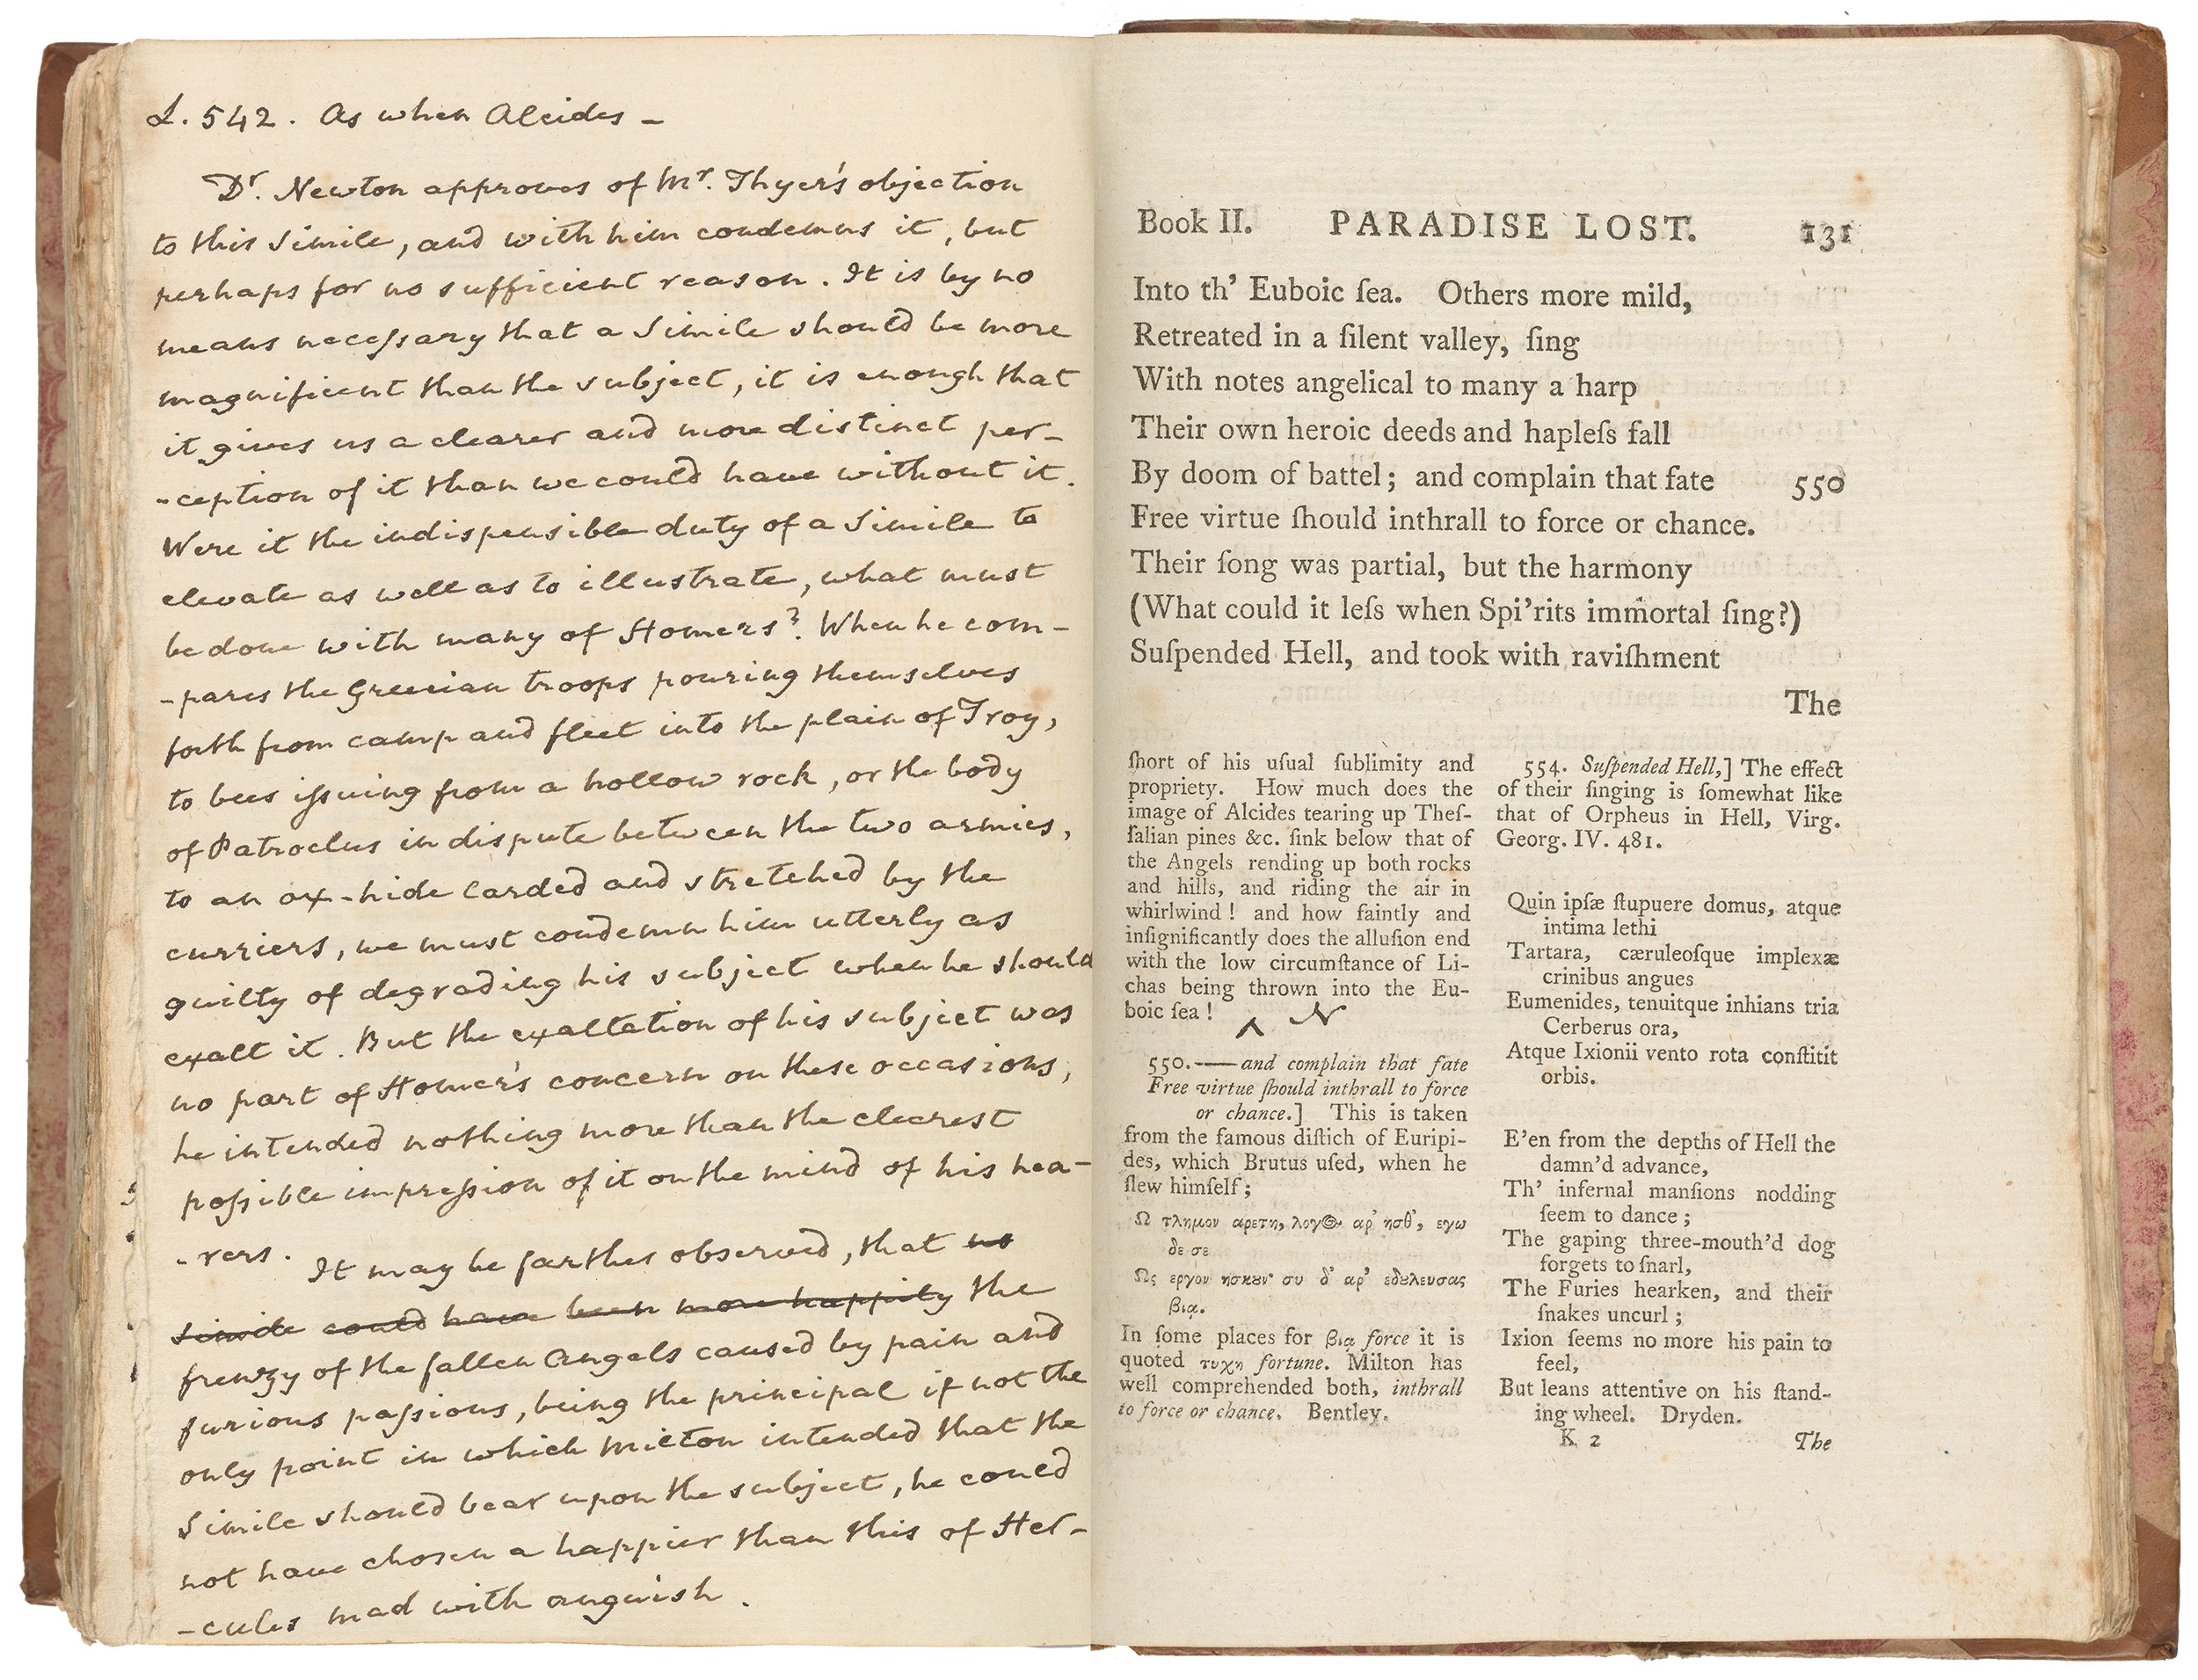 L. 542. As when Alcides –
Dr. Newton approves of Mr. Thyer's objection
to this Simile, and with him condemns it, but
perhaps for no sufficient reason. It is by no
means neceſsary that a Simile should be more
magnificent than the subject, it is enough that
it gives us a clearer and more distinct per-
-ception of it than we could have without it.
Were it the indispensible duty of a Simile to
elevate as well as to illustrate, what must
be done with many of Homers? When he com-
-pares the Grecian troops pouring themselves
forth from camp and fleet into the plain of Troy,
to bees iſsuing from a hollow rock, or the body
of Patroclus in dispute between the two armies,
to an ox-hide larded and stretched by the
curriers, we must condemn him utterly as
guilty of degrading his subject when he should
exalt it. But the exaltation of his subject was
no part of Homer's concern on these occasions,
he intended nothing more than the clearest
poſsible impreſsion of it on the mind of his hea-
-rers.
It may be farther observed, that no
Simile could have been more happily the
frenzy of the fallen Angels caused by pain and
furious paſsions, being the principal if not the
only point in which Milton intended that the
Simile should bear upon the subject, he could
not have chosen a happier than this of Her-
-cules mad with anguish.
Book II. PARADISE LOST. 131
Into th' Euboic ſea. Others more mild,
Retreated in a ſilent valley, ſing
With notes angelical to many a harp
Their own heroic deeds and hapleſs fall
By doom of battel; and complain that fate 550
Free virtue ſhould inthrall to force or chance.
Their ſong was partial, but the harmony
(What could it leſs when Spi'rits immortal ſing?)
Suſpended Hell, and took with raviſhment
The
ſhort of his uſual ſublimity and
propriety. How much does the
image of Alcides tearing up Theſ-
ſalian pines &c. ſink below that of
the Angels rending up both rocks
and hills, and riding the air in
whirlwind! and how faintly and
inſignificantly does the alluſion end
with the low circumſtance of Li-
chas being thrown into the Eu-
boic ſea!
^ N
550.—and complain that fate
Free virtue ſhould inthrall to force
or chance.] This is taken
from the famous diſtich of Euripi-
des, which Brutus uſed, when he
ſlew himſelf;
Ω τλημον αρετη, λογος αρ' ησθ', εγω
δε σε
Ως εργον ησκουν· συ δ' αρ' εδουλευσας
βιᾳ.
In ſome places for βιᾳ force it is
quoted τυχη fortune. Milton has
well comprehended both, inthrall
to force or chance. Bentley.
554. Suſpended Hell,] The effect
of their ſinging is ſomewhat like
that of Orpheus in Hell, Virg.
Georg. IV. 481.
Quin ipſæ ſtupuere domus, atque
intima lethi
Tartara, cæruleoſque implexæ
crinibus angues
Eumenides, tenuitque inhians tria
Cerberus ora,
Atque Ixionii vento rota conſtitit
orbis.
E'en from the depths of Hell the
damn'd advance,
Th' infernal manſions nodding
ſeem to dance;
The gaping three-mouth'd dog
forgets to ſnarl,
The Furies hearken, and their
ſnakes uncurl;
Ixion ſeems no more his pain to
feel,
But leans attentive on his ſtand-
ing wheel. Dryden.
K 2 The